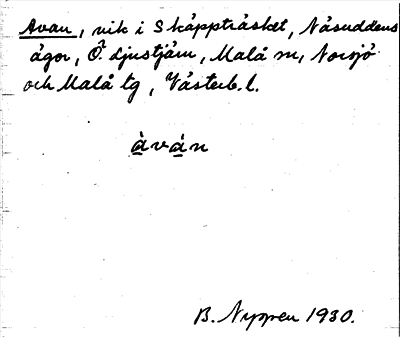 Avan, vik i Skäppträsket, Näsuddens
ägor, Ö. Ljustjärn, Malå sn, Norsjö
och Malå tg, Västerb. l.
àván
B. Nyppen 1930.